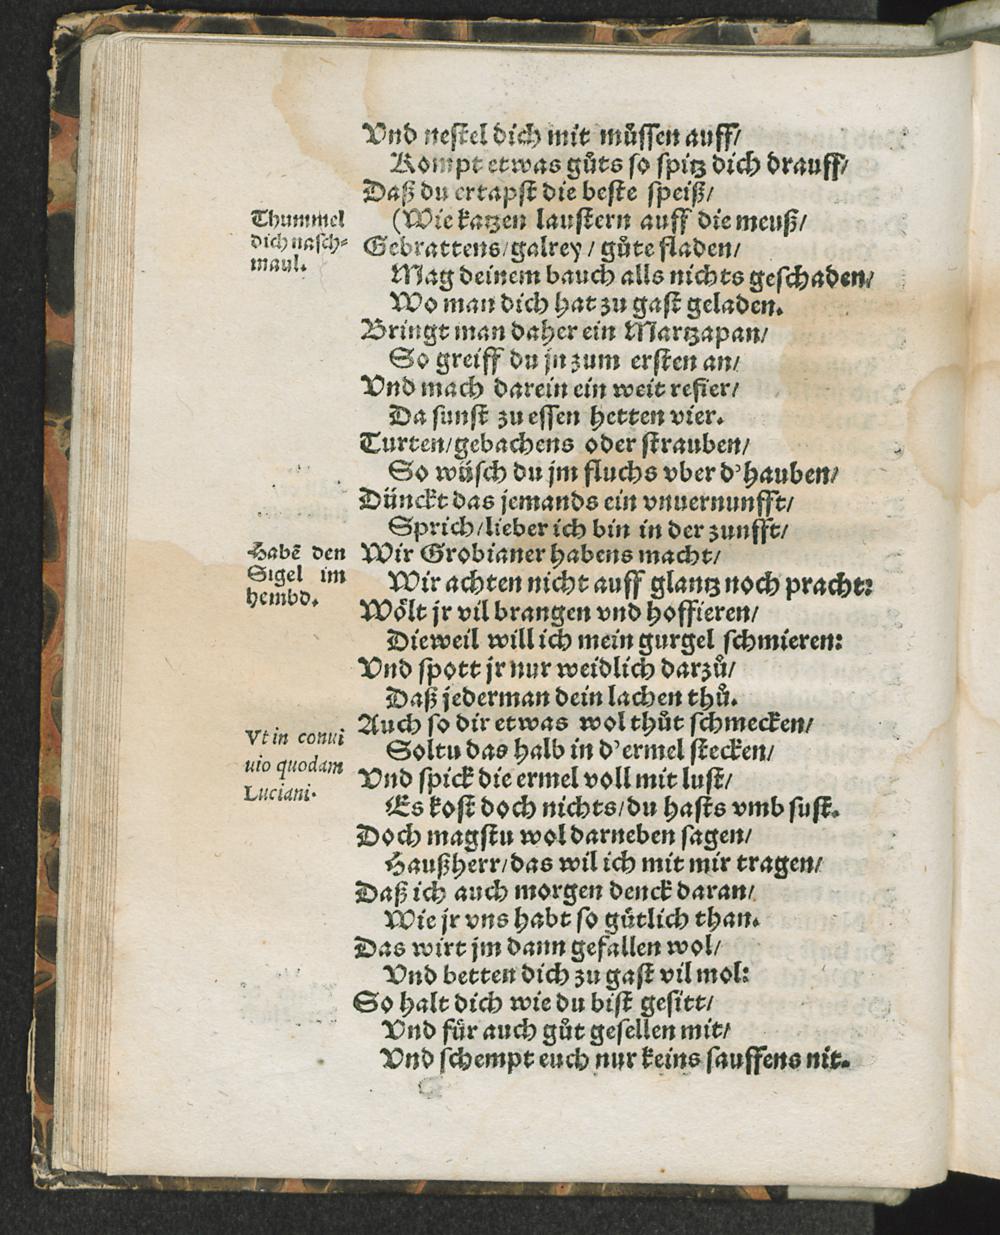 Vnd nestel dich mit müssen auff/
Kompt etwas gůts so spitz dich drauff/
Daß du ertapst die beste speiß/
(Wie katzen laustern auff die meuß/
Thummel
dich nasch-
maul.
Gebrattens/galrey/ gůte fladen/
Mag deinem bauch alls nichts geschaden/
Wo man dich hat zu gast geladen.
Bringt man daher ein Martzapan/
So greiff du jn zum ersten an/
Vnd mach darein ein weit refier/
Da sunst zu essen hetten vier.
Turten/gebachens oder strauben/
So wüsch du jm fluchs vber d'hauben/
Dünckt das jemands ein vnuernunfft/
Sprich/lieber ich bin in der zunfft/
Habē den
Sigel im
hembd.
Wir Grobianer habens macht/
Wir achten nicht auff glantz noch pracht:
Wölt jr vil brangen vnd hoffieren/
Dieweil will ich mein gurgel schmieren:
Vnd spott jr nur weidlich darzů/
Daß jederman dein lachen thů.
Auch so dir etwas wol thůt schmecken/
Vt in conui
uio quodam
Luciani.
Soltu das halb in d'ermel stecken/
Vnd spick die ermel voll mit lust/
Es kost doch nichts/du hasts vmb sust.
Doch magstu wol darneben sagen/
Haußherr/das wil ich mit mir tragen/
Daß ich auch morgen denck daran/
Wie jr vns habt so gütlich than.
Das wirt jm dann gefallen wol/
Vnd betten dich zu gast vil mol:
So halt dich wie du bist gesitt/
Vnd für auch gůt gesellen mit/
Vnd schempt euch nur keins sauffens nit.